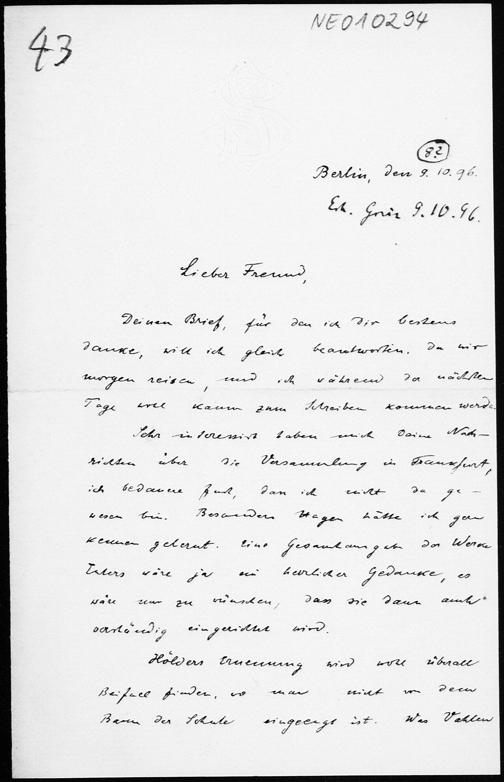 43
NE010294
82
Berlin, den 9.10.96.
Erh. 9.10.96.
Lieber Freund,
Deinen Brief, für den ich Dir bestens
danke, will ich gleich beantworten, da wir
morgen reisen, und ich während der nächsten
Tage wohl kaum zum Schreiben kommen werde.
Sehr interessirt haben mich Deine Nach-
richten über die Versammlung in Frankfurt,
ich bedauere fast, dass ich nicht da ge-
wesen bin. Besonders hätte ich gern
kennen gelernt. Eine Gesamtausgabe der Werke
Eulers wäre ja ein herrlicher Gedanke, es
wäre nur zu wünschen, dass sie dann auch
verständig eingerichtet wird.
Hölders Ernennung wird wohl überall
Beifall finden, wo man nicht von dem
Bann der Schule eingeengt ist. Was Vahlen